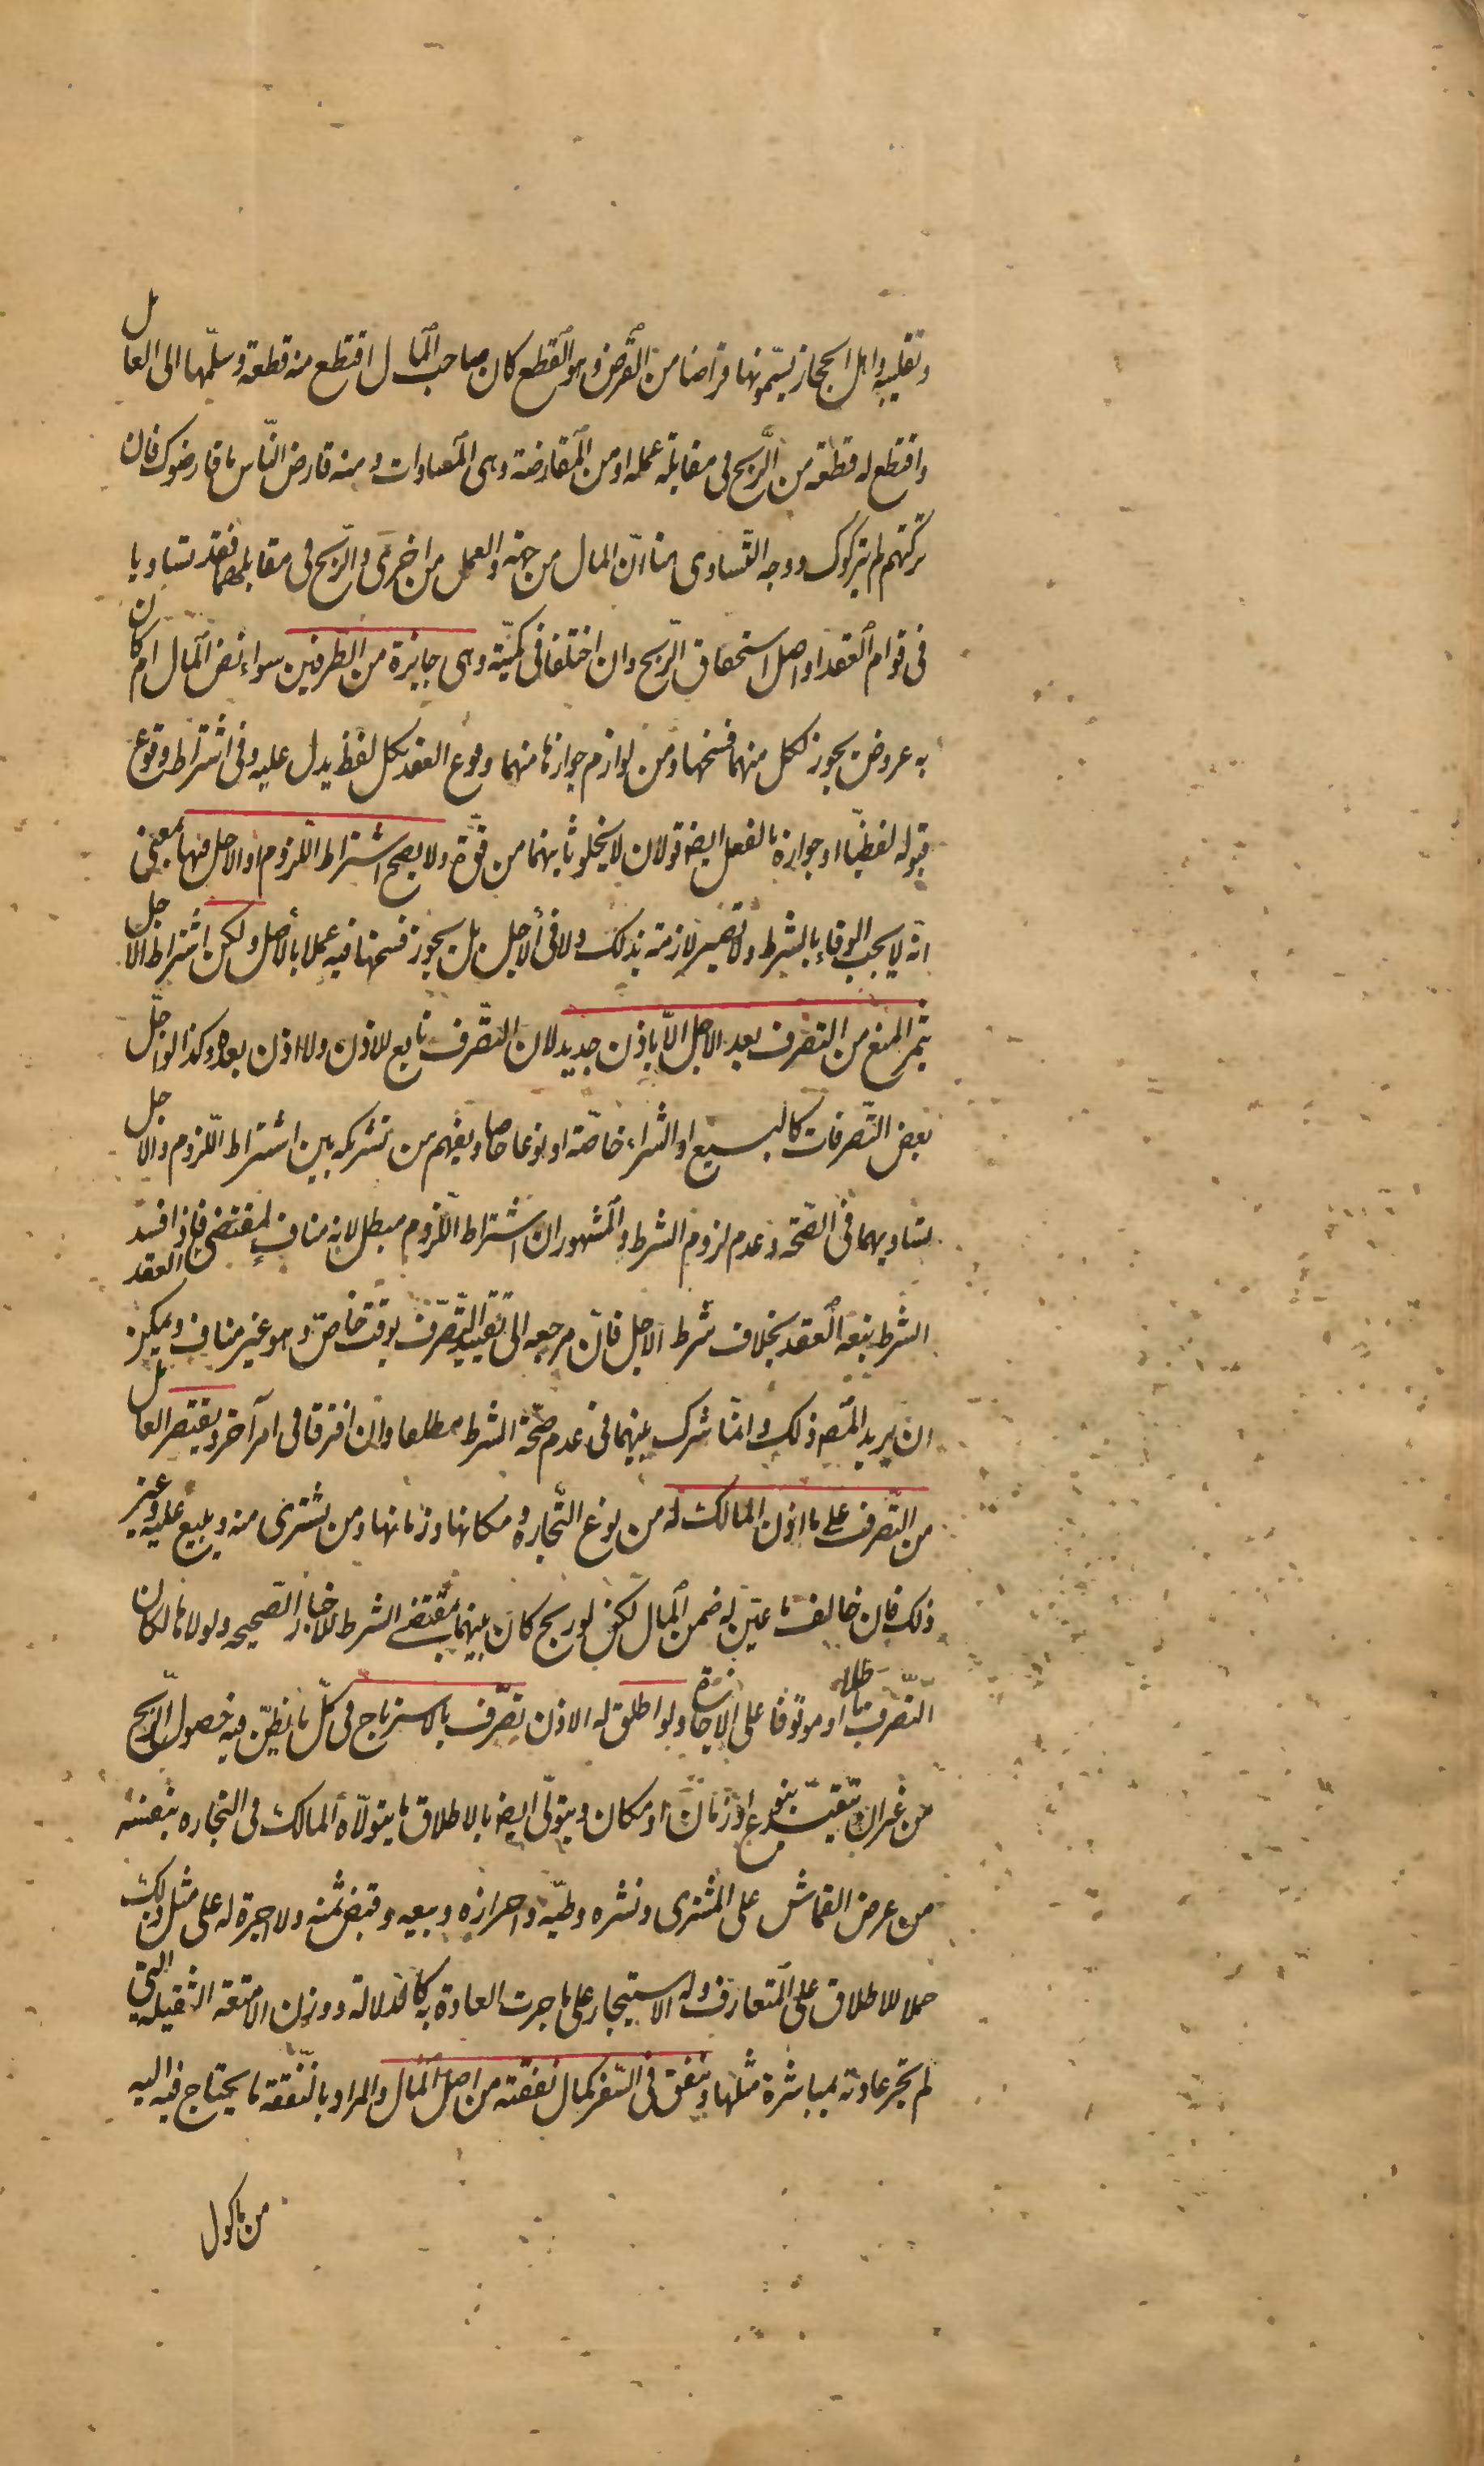 وتقليبه واهل الحجاز يسمّونها قراضا من القرض وهو القطع كان صاحب المال اقتطع منه قطعة وسلّمها الى العامل
واقتطع له قطعة من الرّبح فى مقابلة عمله او من المقارضة وهى المساوات ومنه قارض النّاس ما قارضوك فان
تركتهم لم يتركوك ووجه التّساوى هنا انّ المال من جهة والعمل من اخرى والرّبح فى مقابلهما فقد تساويا
فى قوام العقد او اصل استحقاق الرّبح وان اختلفا فى كميّته وهى جايزة من الطرفين سواء نض المال ام كان
به عروض يجوز لكل منهما فسخها ومن لوازم جوازها منهما وقوع العقد بكل لفظ يدل عليه وفى اشتراط وقوع
قبوله لفظيّا او جوازه بالفعل ايضا قولان لا يخلو ثانيهما من قوّة ولا يصح اشتراط اللّزوم او الاجل فيها بمعنى
انّه لا يجب الوفاء بالشرط ولا تصير لازمة بذلك ولا فى الاجل بل يجوز فسخها فيه عملا بالاصل ولكن اشتراط الاجل
يثمر المنع من التصرف بعد الاجل الّا باذن جديد لان التصّرف تابع للاذن ولا اذن بعده وكذا لو اجّل
بعض التّصرفات كالبيع او الشراء خاصّة او نوعا خاصا ويفهم من تشريكه بين اشتراط اللّزوم والاجل
تساويهما فى الصّحّة وعدم لزوم الشرط والمشهور ان اشتراط اللّزوم مبطل لانه مناف لمقتضى العقد فاذا فسد
الشرط تبعه العقد بخلاف شرط الاجل فانّ مرجعه الى تقييد التّصرّف بوقت خاصّ وهو غير مناف ويمكن
ان يريد المصّ ذلك وانّما شرك بينهما فى عدم صحّة الشرط مطلقا وان افترقا فى امر آخر ويقتصر العامل
من التّصرف على ما اذن المالك له من نوع التّجارة ومكانها وزمانها ومن يشترى منه ويبيع عليه وغير
ذلك فان خالف ما عيّن له ضمن المال لكن لو ربح كان بينهما بمقتضى الشرط للاخبار الصّحيحه ولولاها لكان
التّصرّف باطلا او موقوفا على الاجازة ولو اطلق له الاذن تصرّف بالاسترباح فى كلّ ما يظنّ فيه حصول الرّبح
من غير ان يتقيّد بنوع او زمان او مكان ويتولّى ايضا بالاطلاق ما يتولّاه المالك فى التجاره بنفسه
من عرض القماش على المشترى ونشره وطيّه واحرازه وبيعه وقبض ثمنه ولا اجرة له على مثل ذلك
حملا للاطلاق على المتعارف وله الاستيجار على ما جرت العادة به كالدلالة ووزن الامتعة الثقيله التى
لم تجر عادته بمباشرة مثلها وينفق فى السّفر كمال نفقته من اصل المال والمراد بالنّفقة ما يحتاج فيه اليه
من ماكول